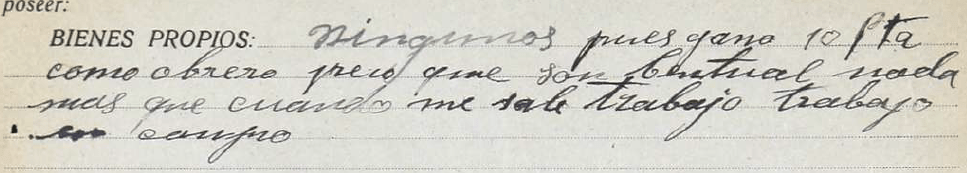 poseer:
BIENES PROPIOS: Ningunos pues gano 10 pta
como obrero pero que son bentual nada
mas que cuando me sale trabajo trabajo
en campo